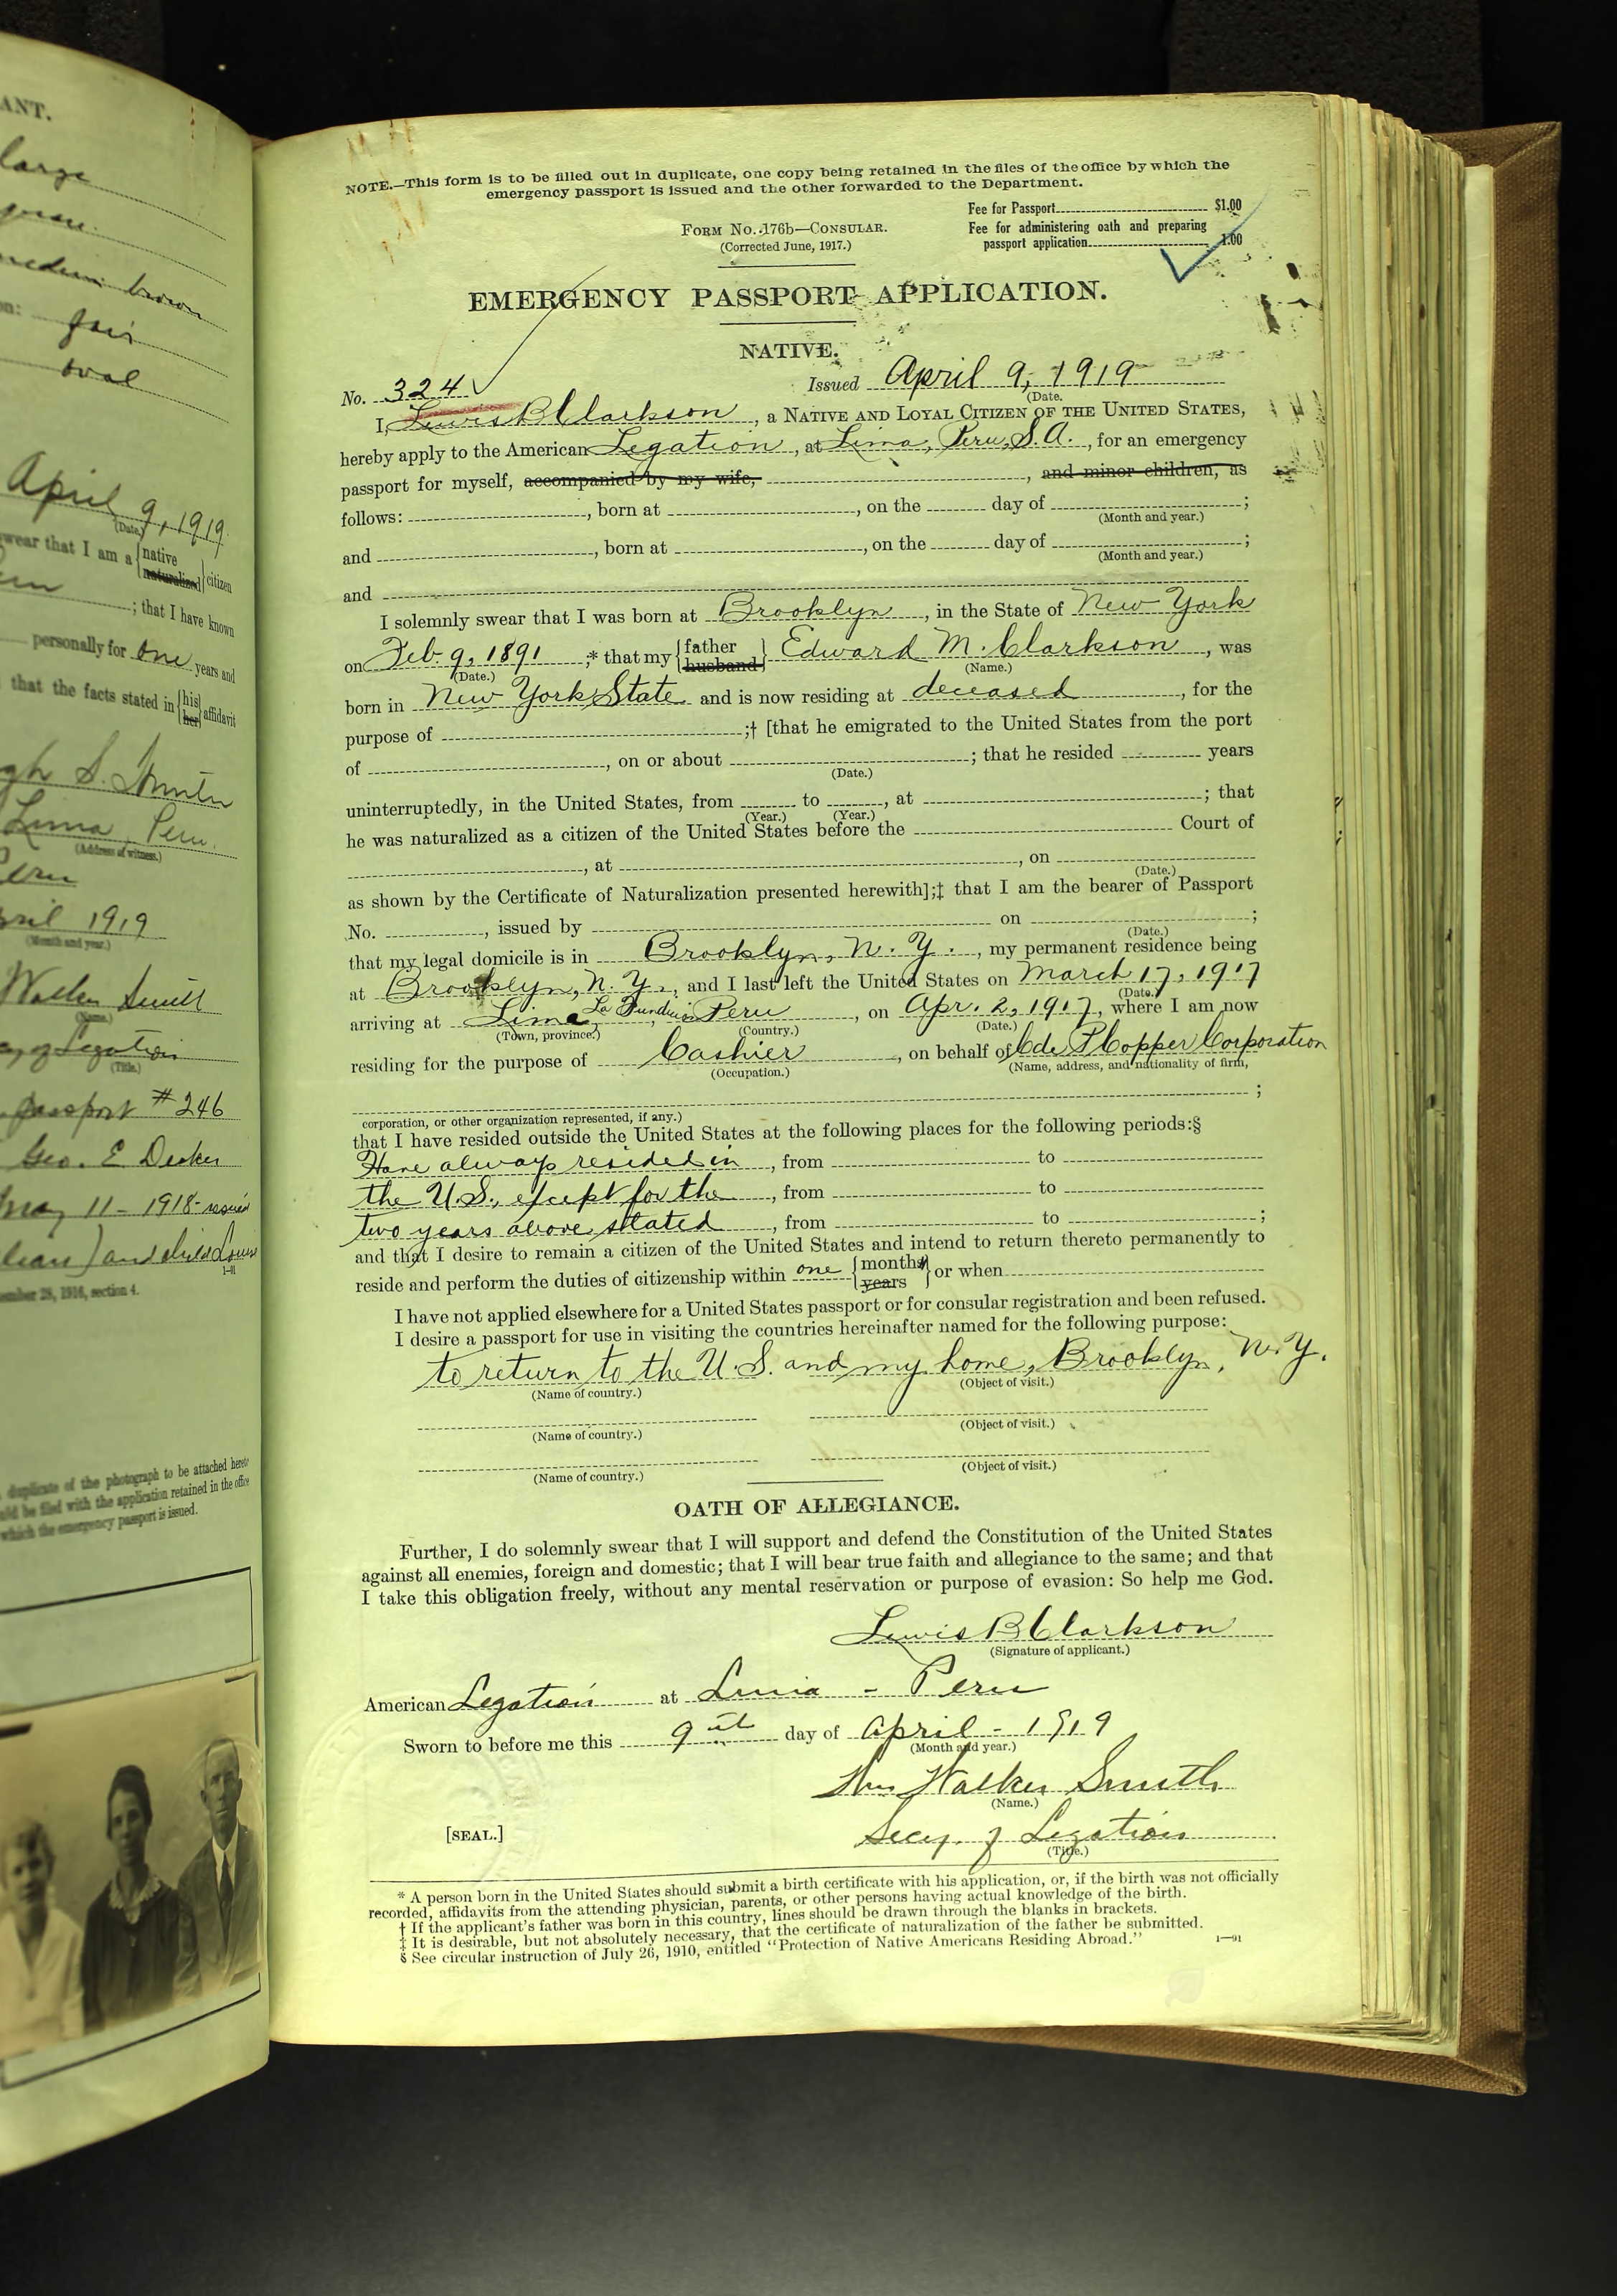 ANT.
large
medium brown
on: fair
oval
April 9, 1919
(Date.)
swear that I am a {native naturalized} citizen
; that I have known
personally for one years and
that the facts stated in {his her} affidavit
Lima, Peru.
(Address of witness.)
Peru
April 1919
(Month and year.)
Walker Smith
(Name.)
of Legation
(Title.)
passport #246
Geo. E Decker
May 11 - 1918 - issued
) and child Louis
1—91
ember 28, 1916, section 4.
duplicate of the photograph to be attached hereto
uld be filed with the application retained in the office
which the emergency passport is issued.
NOTE.—This form is to be filled out in duplicate, one copy being retained in the files of the office by which the
emergency passport is issued and the other forwarded to the Department.
Fee for Passport $1.00
FORM NO. 176b—CONSULAR.
Fee for administering oath and preparing
(Corrected June, 1917.)
passport application 1.00
EMERGENCY PASSPORT APPLICATION.
NATIVE.
No. 324 Issued April 9, 1919
(Date.
I, Lewis B Clarkson, a NATIVE AND LOYAL CITIZEN OF THE UNITED STATES,
hereby apply to the American Legation, at Lima, Peru, S.A., for an emergency
passport for myself, accompanied by my wife, , and minor children, as
follows: , born at , on the day of ;
(Month and year.)
and , born at , on the day of ;
(Month and year.)
and
I solemnly swear that I was born at Brooklyn, in the State of New York
on Feb. 9, 1891 ;* that my {father husband} Edward M. Clarkson, was
(Date.) (Name.)
born in New York State and is now residing at deceased, for the
purpose of ;† [that he emigrated to the United States from the port
of , on or about ; that he resided years
(Date.)
uninterruptedly, in the United States, from to , at ; that
(Year.) (Year.)
he was naturalized as a citizen of the United States before the Court of
, at , on
(Date.)
as shown by the Certificate of Naturalization presented herewith];‡ that I am the bearer of Passport
No. , issued by on ;
(Date.)
that my legal domicile is in Brooklyn, N. Y., my permanent residence being
at Brooklyn, N. Y., and I last left the United States on March 17, 1917
(Date.)
arriving at Lima, La Fundicion Peru, on Apr. 2, 1917, where I am now
(Town, province.) (Country.) (Date.)
residing for the purpose of Cashier, on behalf of C de P Copper Corporation
(Occupation.) (Name, address, and nationality of firm,
;
corporation, or other organization represented, if any.)
that I have resided outside the United States at the following places for the following periods:§
Have always resided in, from to
the U.S., except for the, from to
two years above stated, from to ;
and that I desire to remain a citizen of the United States and intend to return thereto permanently to
reside and perform the duties of citizenship within one {months years} or when
I have not applied elsewhere for a United States passport or for consular registration and been refused.
I desire a passport for use in visiting the countries hereinafter named for the following purpose:
to return to the U.S. and my home, Brooklyn, N.Y.
(Name of country.) (Object of visit.)
(Name of country.) (Object of visit.)
(Name of country.) (Object of visit.)
OATH OF ALLEGIANCE.
Further, I do solemnly swear that I will support and defend the Constitution of the United States
against all enemies, foreign and domestic; that I will bear true faith and allegiance to the same; and that
I take this obligation freely, without any mental reservation or purpose of evasion: So help me God.
Lewis B Clarkson
(Signature of applicant.)
American Legation at Lima - Peru
Sworn to before me this 9th day of April - 1919
(Month and year.)
Wm Walker Smith
(Name.)
[SEAL.] Secy. of Legation
(Title.)
* A person born in the United States should submit a birth certificate with his application, or, if the birth was not officially
recorded, affidavits from the attending physician, parents, or other persons having actual knowledge of the birth.
† If the applicant's father was born in this country, lines should be drawn through the blanks in brackets.
‡ It is desirable, but not absolutely necessary, that the certificate of naturalization of the father be submitted.
§ See circular instruction of July 26, 1910, entitled "Protection of Native Americans Residing Abroad." 1—91